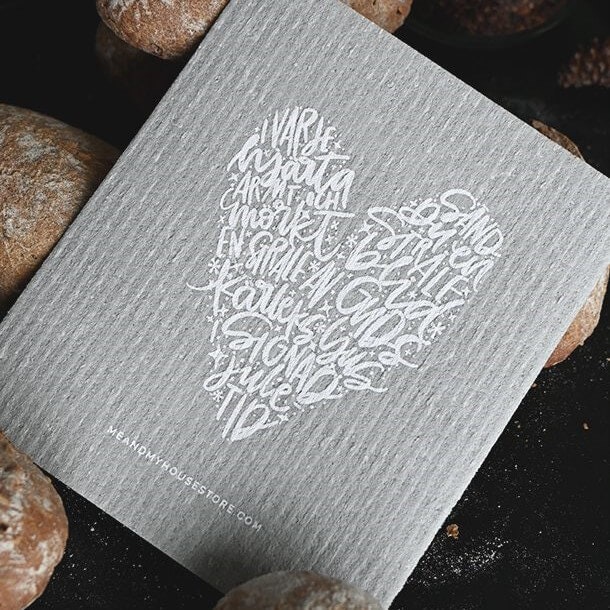 I VARJE
hjärta
ARMT OCH
mörkt
SÄND
DU en
STRÅLE
blid
EN STRÅLE AV GUDS
kärleks ljus
I SIGNAD
jule
TID
MEANDMYHOUSESTORE.COM